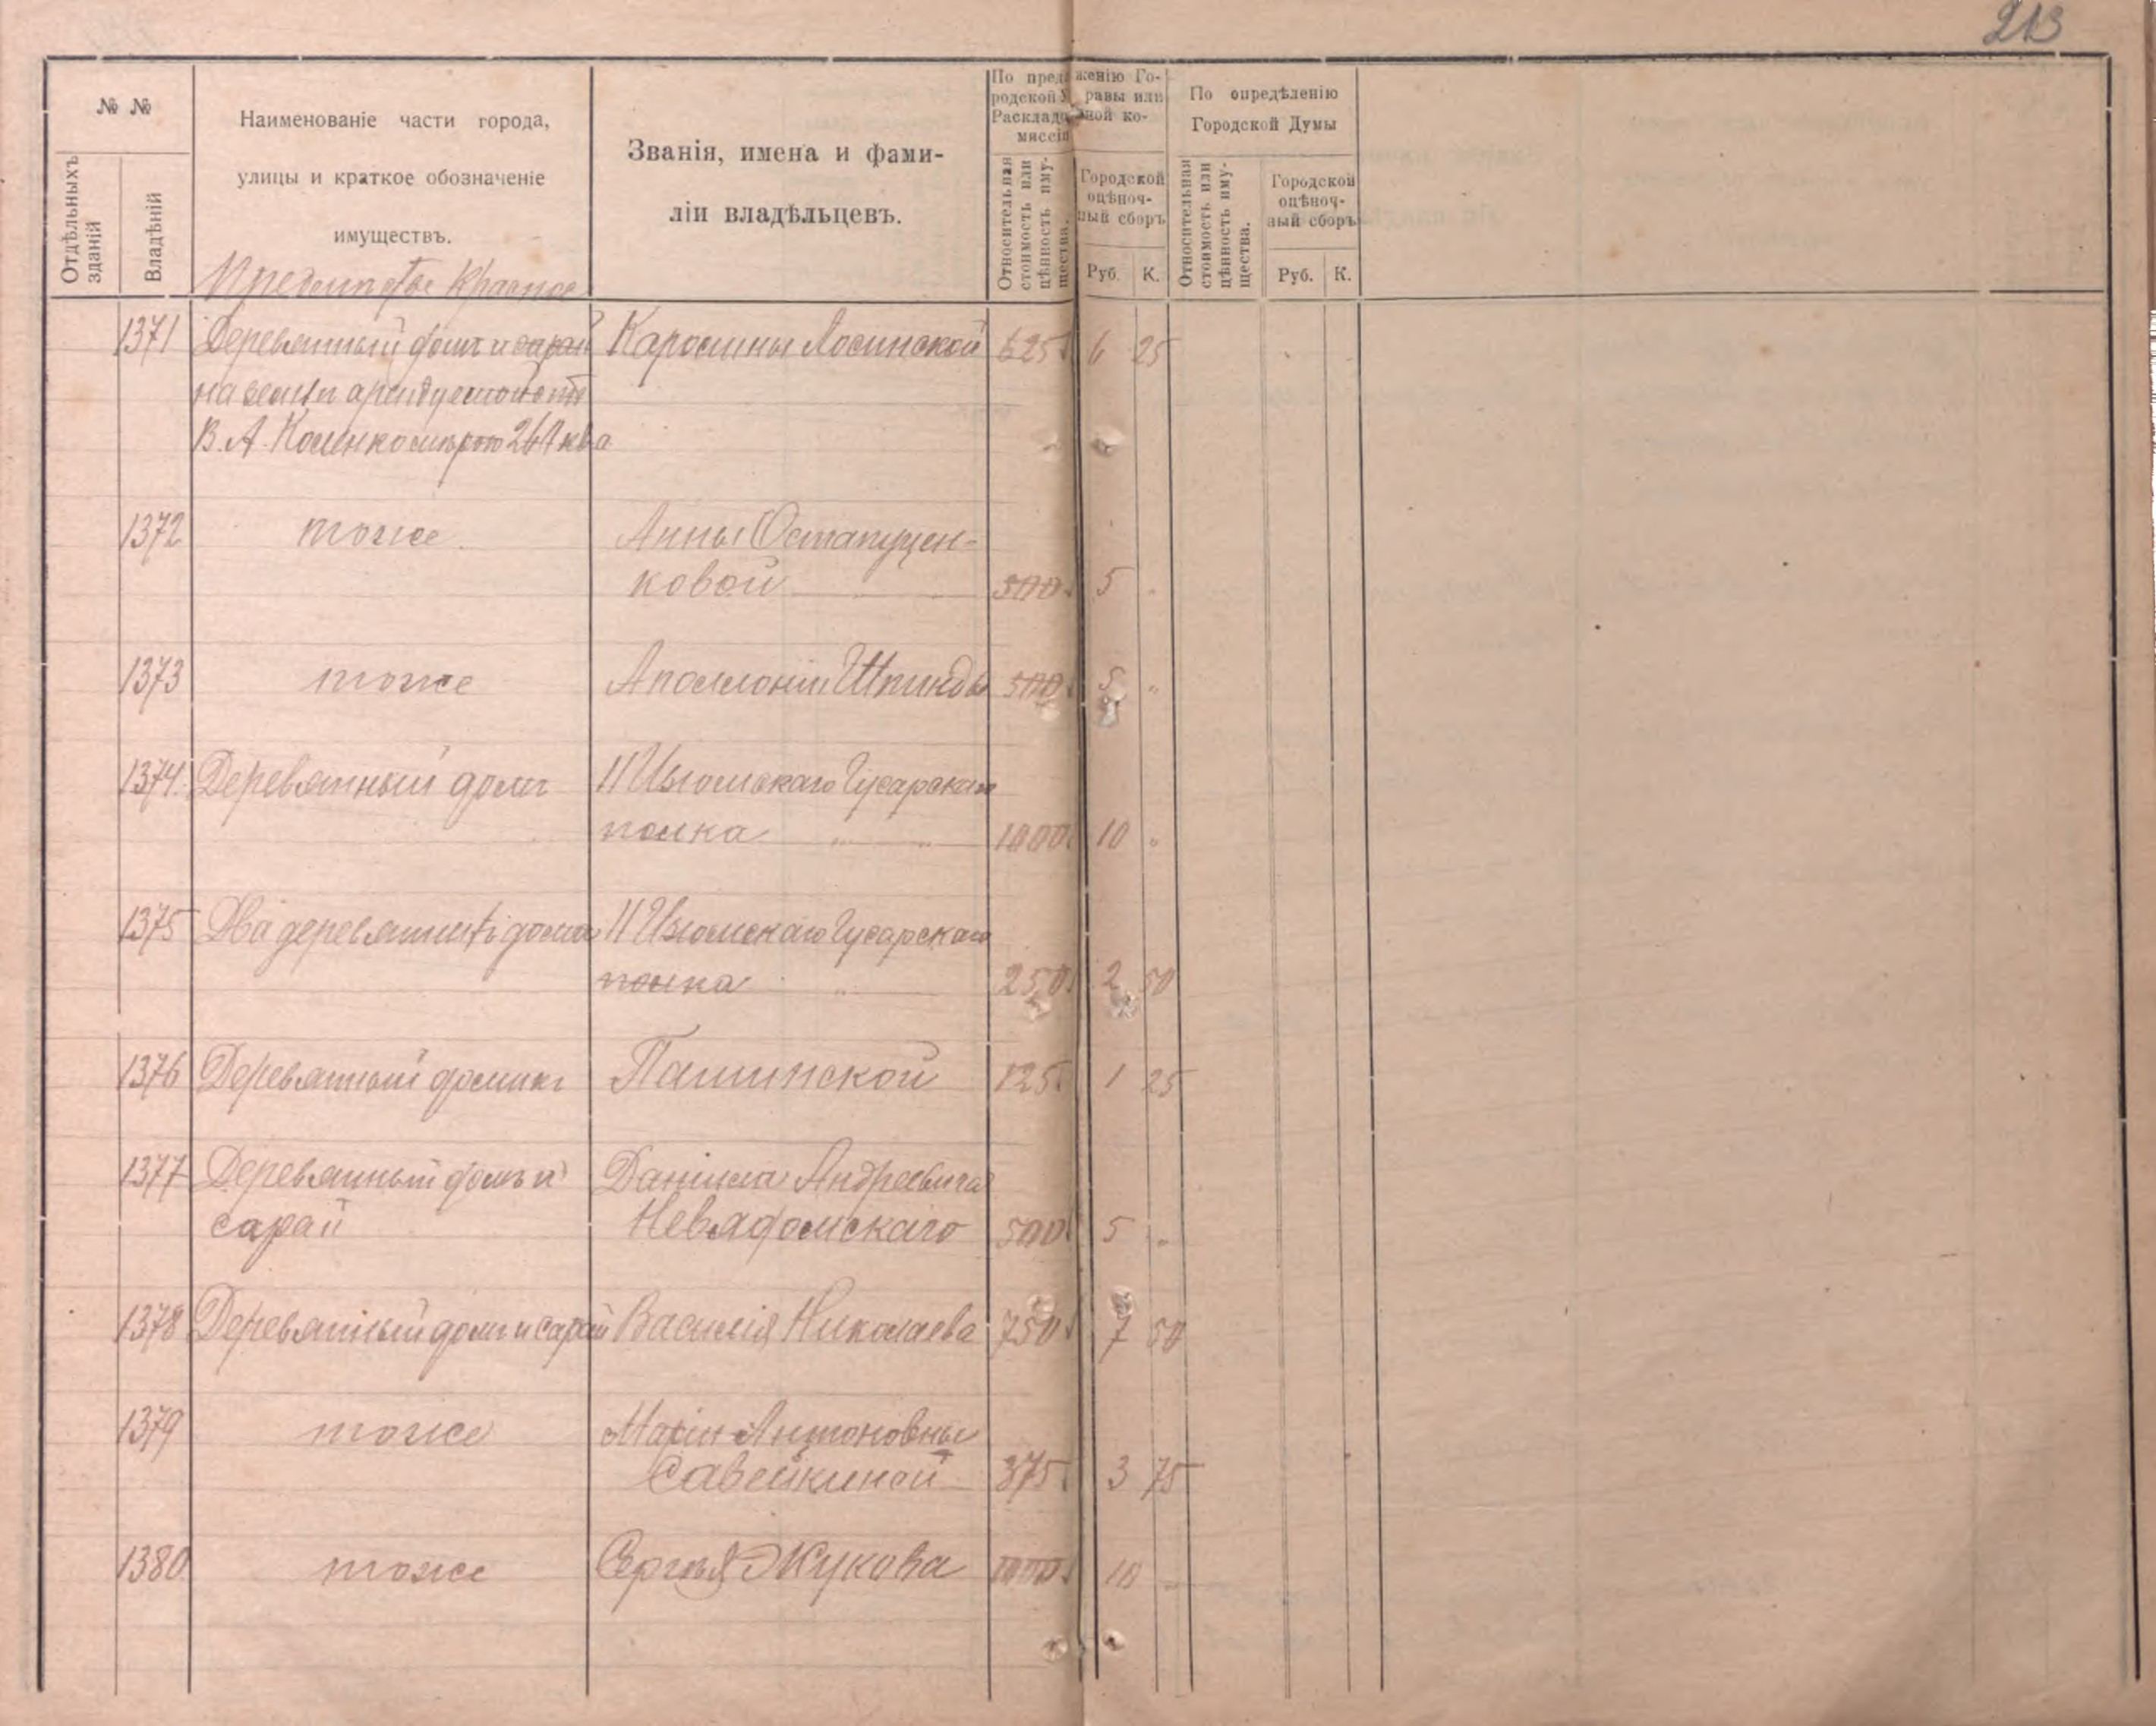 213
№ №
Отдѣльныхъ зданій
Владѣній
Наименованіе части города,
улицы и краткое обозначеніе
имуществъ.
Предмѣстье Красное
Званія, имена и фами-
ліи владѣльцевъ.
По предложенію Го-
родской Управы или
Раскладочной ко-
миссіи
Относительная
стоимость или
цѣнность иму-
щества.
Городской
оцѣноч-
ный сборъ
Руб. К.
По опредѣленію
Городской Думы
Относительная
стоимость или
цѣнность иму-
щества.
Городской
оцѣноч-
ный сборъ
Руб. К.
1371 Деревянный домъ и сарай Каролины Лосинской 625 6 25
на земли арендуемой отъ
В. А. мѣрою 264 кв
1372 тоже Анны Остапущен-
ковой 500 5 "
1373 тоже Аполлоніи Шпинды 500 5 "
1374 Деревянный домъ 11 Изюмскаго Гусарскаго
полка " " 1000 10 "
1375 Два деревянныхъ дома 11 Изюмскаго Гусарскаго
полка " 250 2 50
1376 Деревянный домикъ 125 1 25
1377 Деревянный домъ и Даніила Андреевича
сарай Невядомскаго 500 5 "
1378 Деревянный домъ и сарай Василія Николаева 750 7 50
1379 тоже Маріи Антоновны
Савейкиной 375 3 75
1380 тоже Сергѣя Жукова 1000 10 "